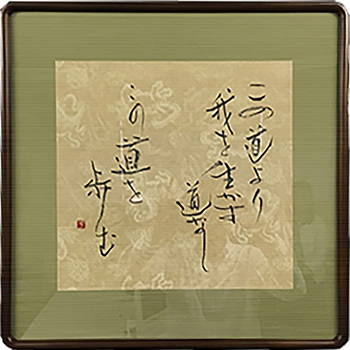 この道より
我を生かす
道なし
この道を
歩む